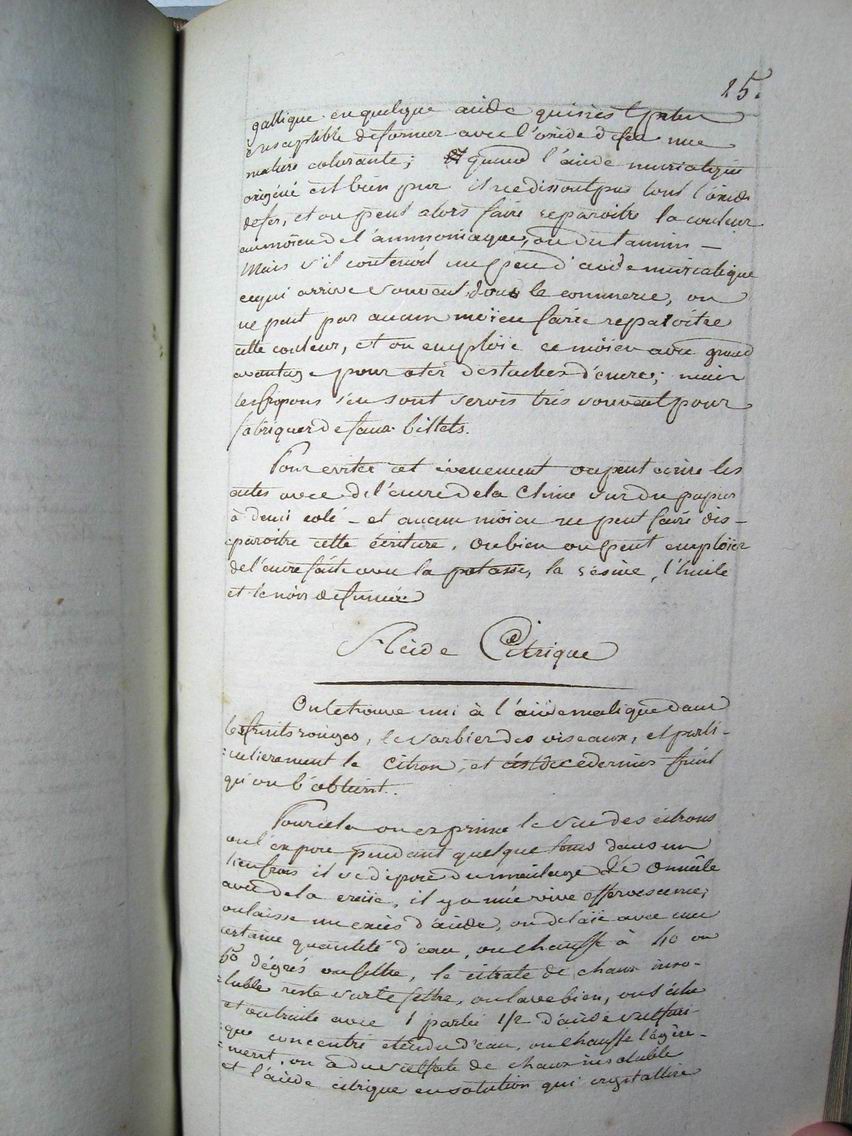 25.
gallique en quelque acide qui n'est plus
susceptible de former avec l'oxide de fer une
matiere colorante; quand l'acide muriatique
oxigéné est bien pur il ne dissout pas tout l'oxide
de fer, et on peut alors faire reparoitre la couleur
au moien de l'ammoniaque, ou du tannin –
Mais s'il contenoit un peu d'acide muriatique
ce qui arrive souvent dans le commerce, on
ne peut par aucun moïen faire reparoitre
cette couleur, et on emploie ce moïen avec grand
avantage pour oter des taches d'encre; mais
les fripons s'en sont servis très souvent pour
fabriquer de faux billets.
Pour eviter cet évenement on peut ecrire les
actes avec de l'encre de la Chine sur du papier
à demi colé – et aucun moien ne peut faire dis–
paroitre cette écriture. ou bien on peut emploïer
de l'encre faite avec la potasse, la résine, l'huile
et le noir de fumée
Acide Citrique
On le trouve uni à l'acide malique dans
les fruits rouges, le sorbier des oiseaux, et parti–
culierement le citron, et c'est de ce dernier fruit
qu'on l'obtient.
Pour cela on exprime le suc des citrons
on l'expose pendant quelque tems dans un
lieu frais il se dépose du mucilage on le mêle
avec de la craie, il y a une vive effervescence;
on laisse un excès d'acide, on délaïe avec une
certaine quantité d'eau, on chauffe à 40 ou
50 dégrés on filtre, le citrate de chaux inso–
luble reste sur le filtre, on lave bien, on sêche
et on traite avec 1 partie 1/2 d'acide sulfuri
que concentré etendu d'eau, on chauffe légère–
ment, on a du sulfate de chaux insoluble
et l'acide citrique en solution qui crystallise